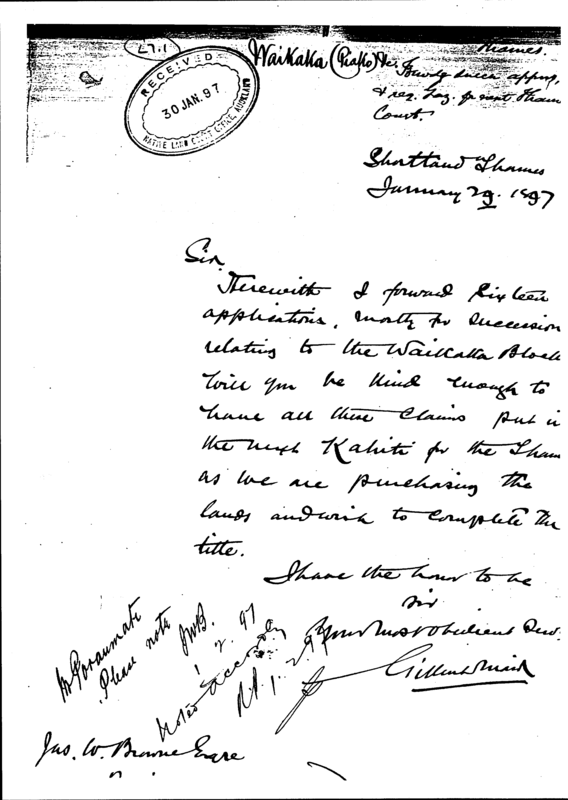 27.1
RECEIVED
30 JAN. 97
NATIVE LAND COURT OFFICE, AUCKLAND
Waikaka (Piako) &c.
Thames.
Fwdg succn appns,
& req. Gaz. for next Tham
Court.
Shortland Thames
January 29. 1897
Sir,
Herewith I forward Sixteen
applications, mostly for Succession
relating to the Waikaka Block
Will you be kind enough to
have all these claims put in
the next Kahiti for the Tham
as we are purchasing the
lands and wish to complete the
title.
I have the honor to be
Sir
Your Most Obedient Serv.
Mr
Please note
JWB.
1. 2. 97
Noted accordly
1. 2. 97
Jas. W. Browne Esqre